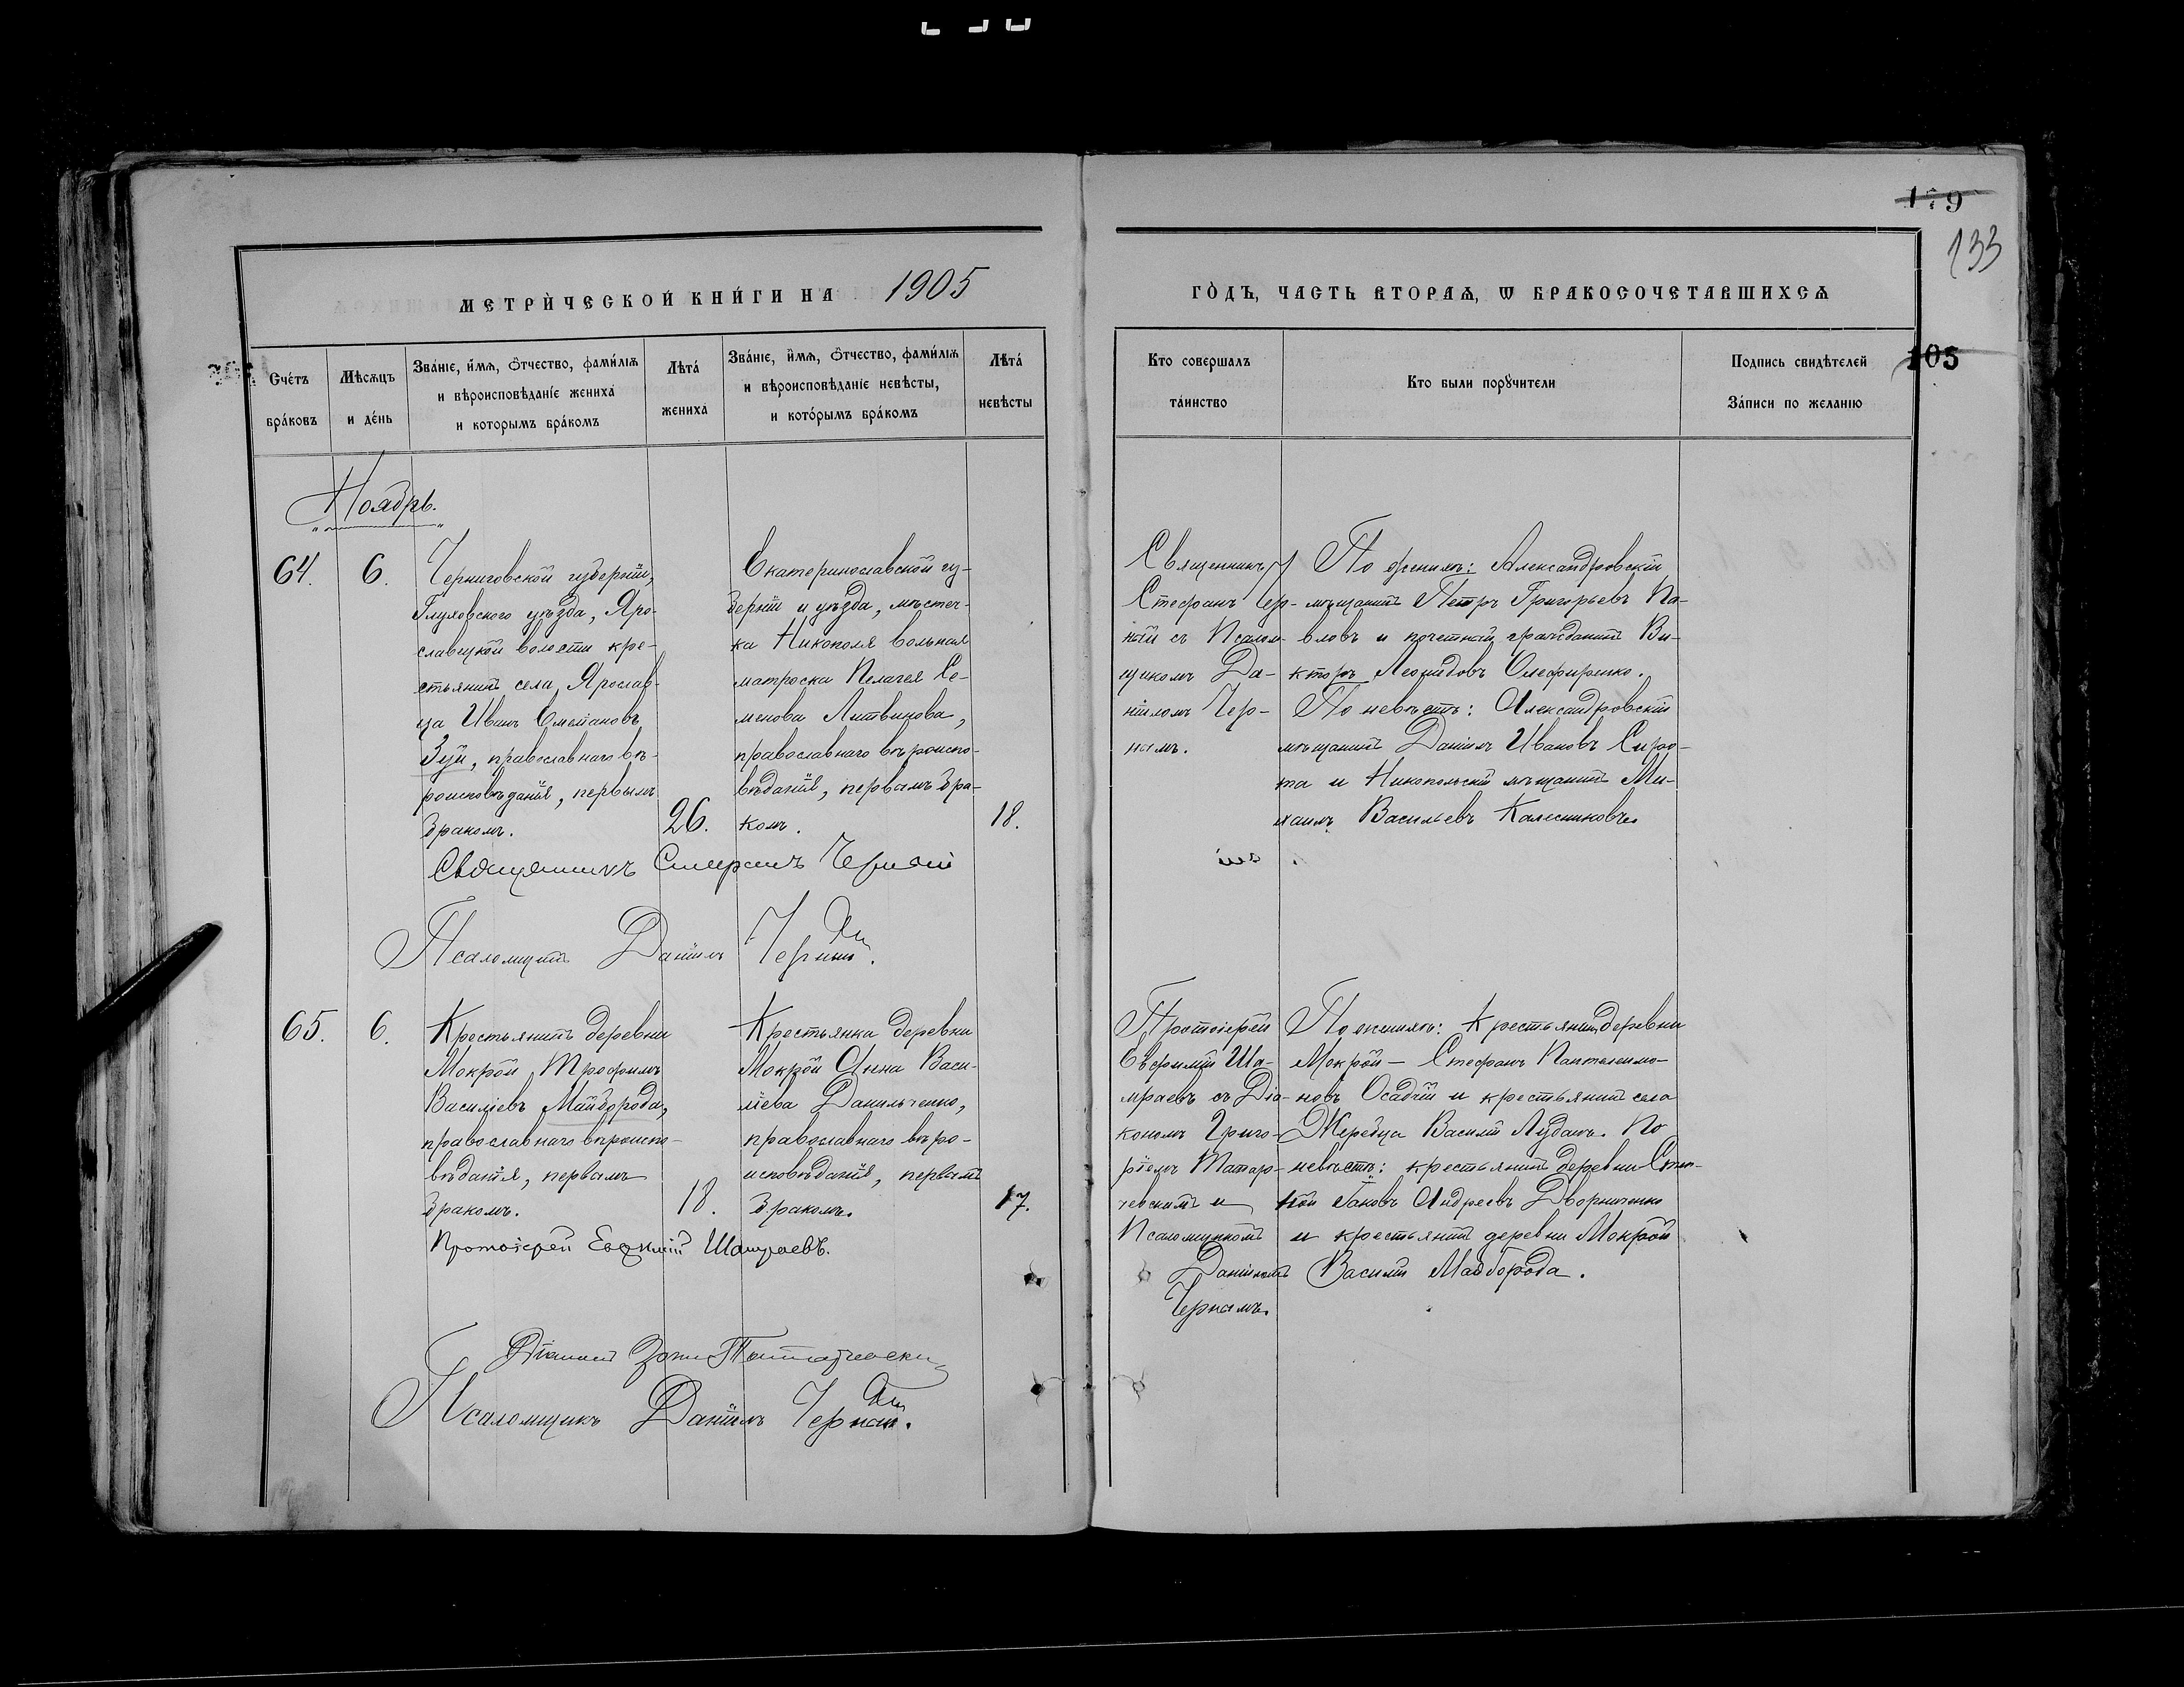 179
133
МЕТРИ́ЧЕСКОЙ КНИ́ГИ НА 1905
ГО́ДЪ, ЧАСТЬ ВТОРАѦ, Ѡ БРАКОСОЧЕТАВШИХСѦ
105
Сче́тъ бра́ковъ
Мѣ́сѧцъ и де́нь
Зва́нїе, и́мѧ, ѻ́тчество, фами́лїѧ
и вѣроисповѣ́данїе жениха̀
и которымъ бра́комъ
Лѣта́ жениха
Зва́нїе, и́мѧ, ѻ́тчество, фами́лїѧ
и вѣроисповѣ́данїе невѣ́сты,
и кото́рымъ бра́комъ
Лѣта́ невѣ́сты
Кто совершалъ та́инство
Кто были порꙋчители
Подпись свидѣтелей
За́писи по желанїю
Ноябрь.
64.
6.
Черниговской губернiи,
Глуховского уѣзда, Яро-
славецкой волости кре-
стьянинъ села Ярослав-
ца Иванъ Омельяновъ
Зуй, православнаго вѣ-
роисповѣданія, первымъ
бракомъ.
26.
Екатеринославской гу-
берніи и уѣзда, мѣстеч-
ка Никополя вольная
матроска Пелагея Се-
менова Литвинова,
православнаго вѣроиспо-
вѣданія, первымъ бра-
комъ.
18.
Священникъ
Стефанъ Чер-
ный съ Псалом-
щикомъ Да-
ніиломъ Чер-
нымъ.
По женихѣ: Александровскій
мѣщанинъ Петръ Григорьевъ Па-
вловъ и почетный гражданинъ Ви-
кторъ Леонидовъ Олефиренко.
По невѣстѣ: Александровскій
мѣщанинъ Даніилъ Ивановъ Сиро-
та и Никопольскій мѣщанинъ Ми-
хаилъ Васильевъ Калесниковъ.
Священникъ Стефанъ Черный
Псаломщикъ Даніилъ Черный.
65.
6.
Крестьянинъ деревни
Мокрой Трофимъ
Василіевъ Майборода,
православнаго вѣроиспо-
вѣданія, первымъ
бракомъ.
18.
Крестьянка деревни
Мокрой Анна Васи-
ліева Данильченко,
православнаго вѣро-
исповѣданія, первымъ
бракомъ.
17.
Протоіерей
Евфимій Ша-
мраевъ съ Діа-
кономъ Григо-
ріемъ Татар-
чевскимъ и
Псаломщикомъ
Даніиломъ
Чернымъ.
По женихѣ: Крестьянинъ деревни
Мокрой – Стефанъ Пантелеимо-
новъ Осадчій и крестьянинъ села
Жеребца Василій Луданъ. По
невѣстѣ: крестьянинъ деревни Степ-
ной Іаковъ Андреевъ Дворниченко
и крестьянинъ деревни Мокрой
Василій Майборода.
Протоіерей Евфимій Шамраевъ.
Псаломщикъ Даніилъ Черный.